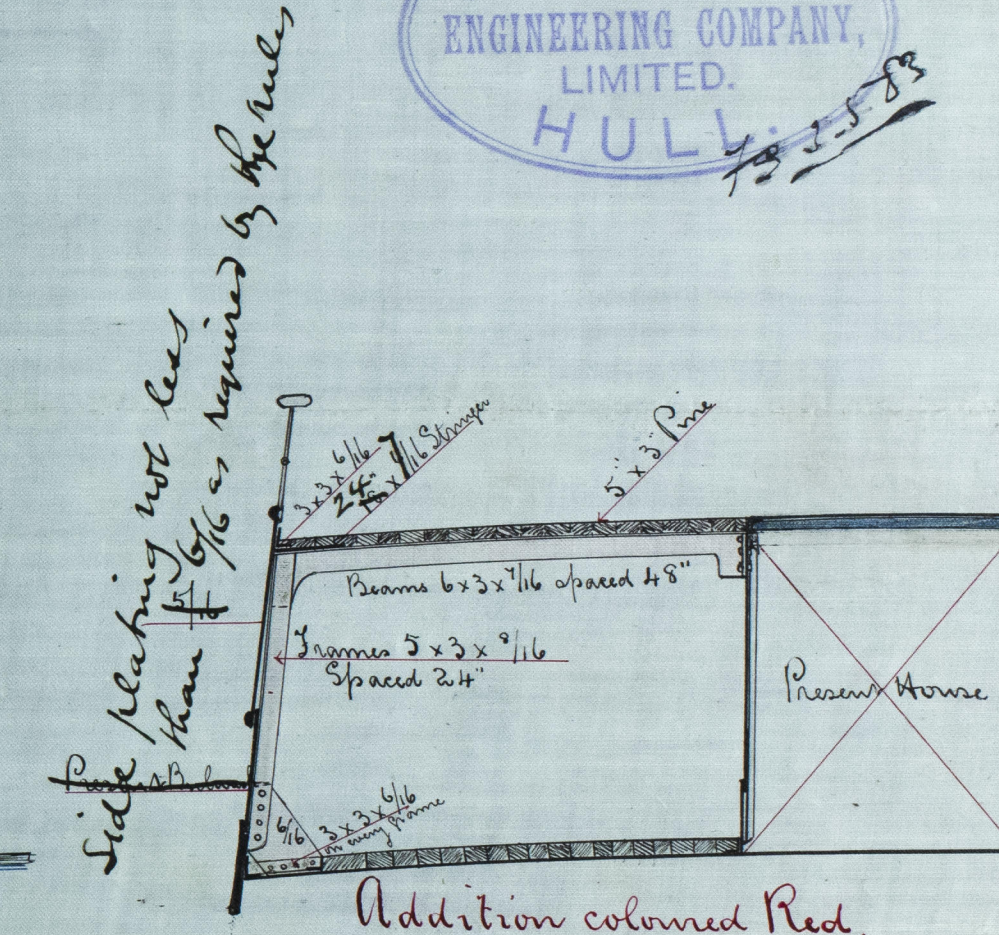 ENGINEERING COMPANY,
LIMITED.
HULL.
Side plating not less
than 6/16 as required by the rules
3 x 3 x 6/16
24" x 7/16 Stringer
5" x 3" Pine
Beams 6 x 3 x 7/16 spaced 48"
Frames 5 x 3 x 8/16
Spaced 24"
Present House
6/16
3 x 3 x 6/16
on every frame
Addition coloured Red